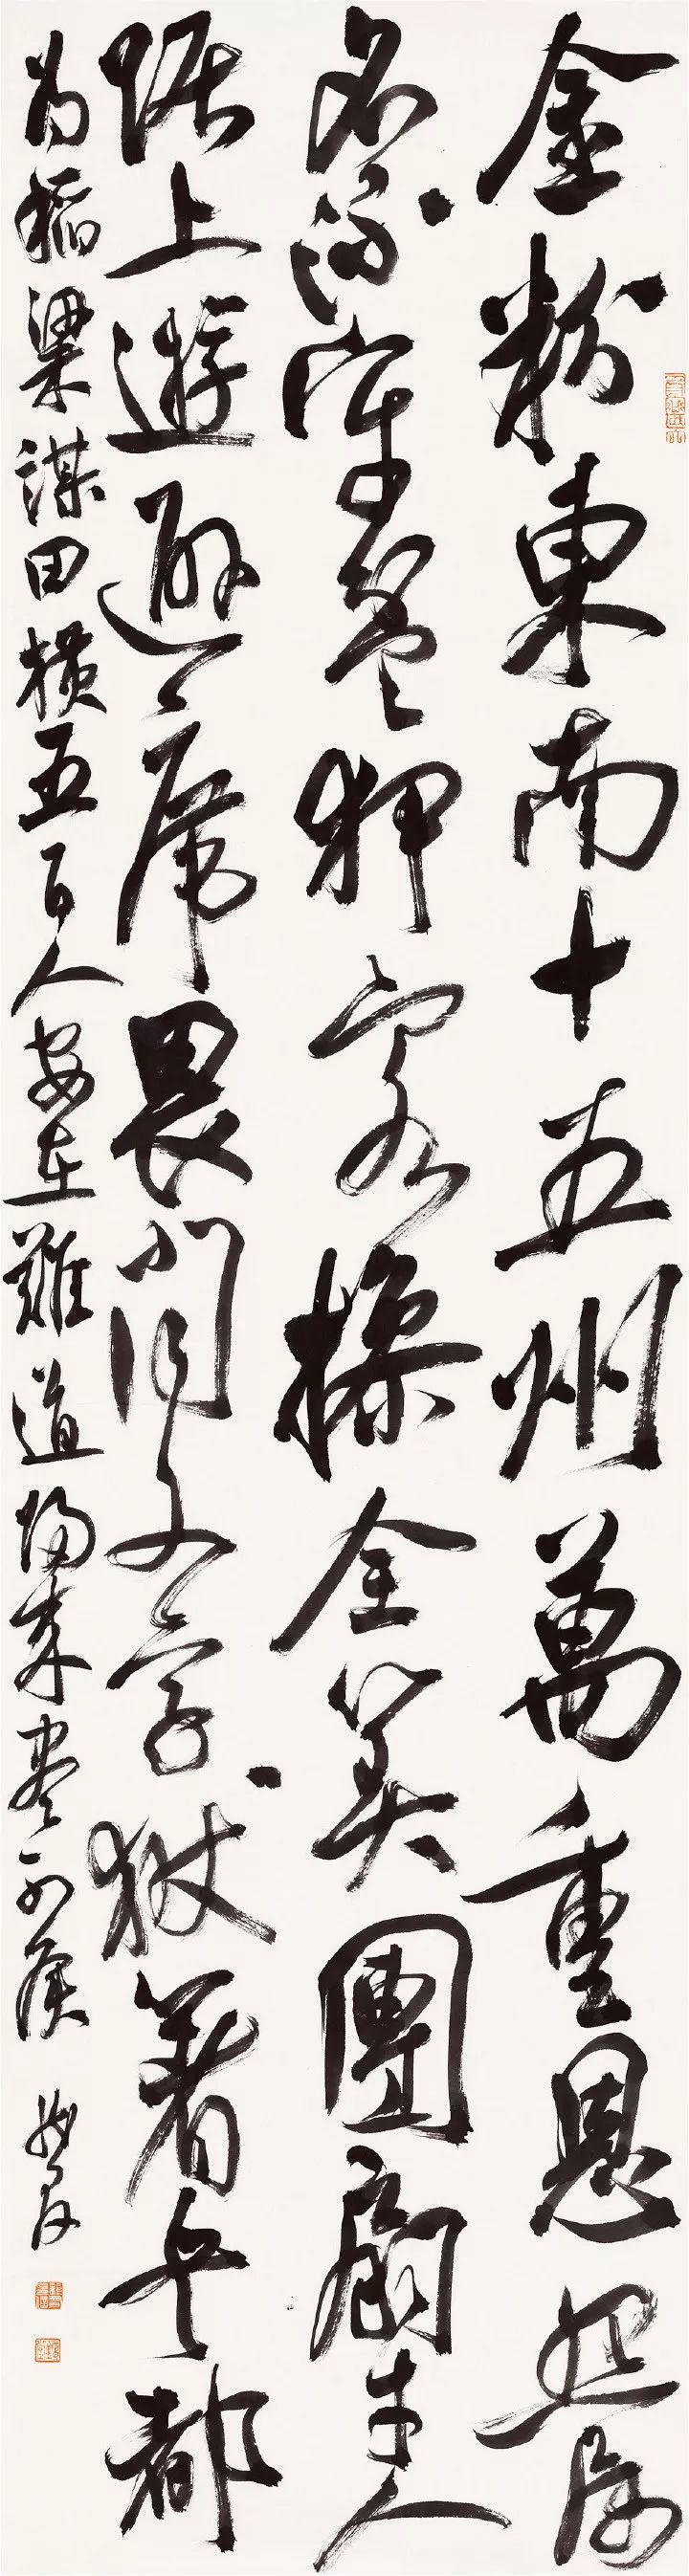 金粉東南十五州萬重恩怨屬
名流牢盆狎客操全算團扇才人
踞上遊避席畏聞文字獄著書都
為稻梁謀田橫五百人安在難道歸來盡列侯